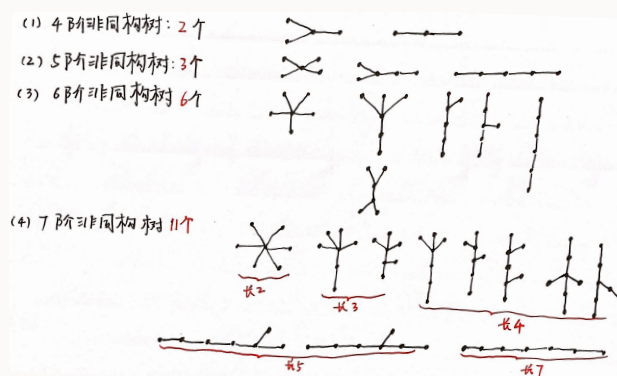 (1) 4阶非同构树: 2个
(2) 5阶非同构树: 3个
(3) 6阶非同构树 6个
(4) 7阶非同构树 11个
长2
长3
长4
长5
长7